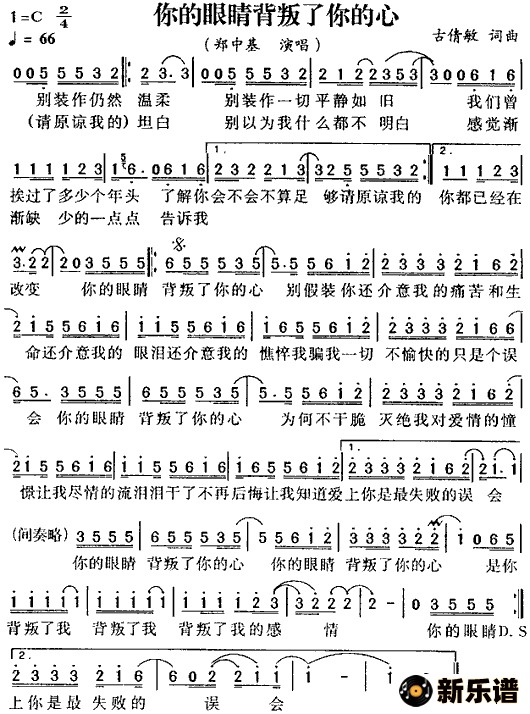 你的眼睛背叛了你的心
1=C 2/4
♩= 66
（郑中基 演唱）
古倩敏 词曲
005 5532 23·3 005 5532 2235 3·30 0616
别装作仍然 温柔 别装作一切平静如 旧 我们曾
(请原谅我的) 坦白 别以为我什么都不 明白 感觉渐
1111123 6·0616 1. 2322213 5·055532 2. 2322232
挨过了多少个年头 了解你会不会不算足 够请原谅我的 你都已经在
渐缺 少的一点点 告诉我
3·22 203555 655532 5·55612 2333232
改变 你的眼睛 背叛了你的心 别假装你还介意我的痛苦和生
2155616 1155616 1155612 2333216
命还介意我的 眼泪还介意我的 憔悴我骗我一切 不愉快的只是个误
65·3555 655532 5·05612 2333232
会 你的眼睛 背叛了你的心 为何不干脆 灭绝我对爱情的憧
2155616 1155616 1155612 1. 2333216 21·1
憬让我尽情的流泪泪干了不再后悔让我知道爱上你是最失败的误 会
(间奏略) 3555 655532 23555 6333322 1065
你的眼睛 背叛了你的心 你的眼睛 背叛了你的心 是你
1111 1111 1112333 3222 2- 03555
背叛了我 背叛了我 背叛了我的感 情 你的眼睛D.S
2. 2333 2161 12 2·16 1- 1
上你是最 失败的 误 会
新乐谱